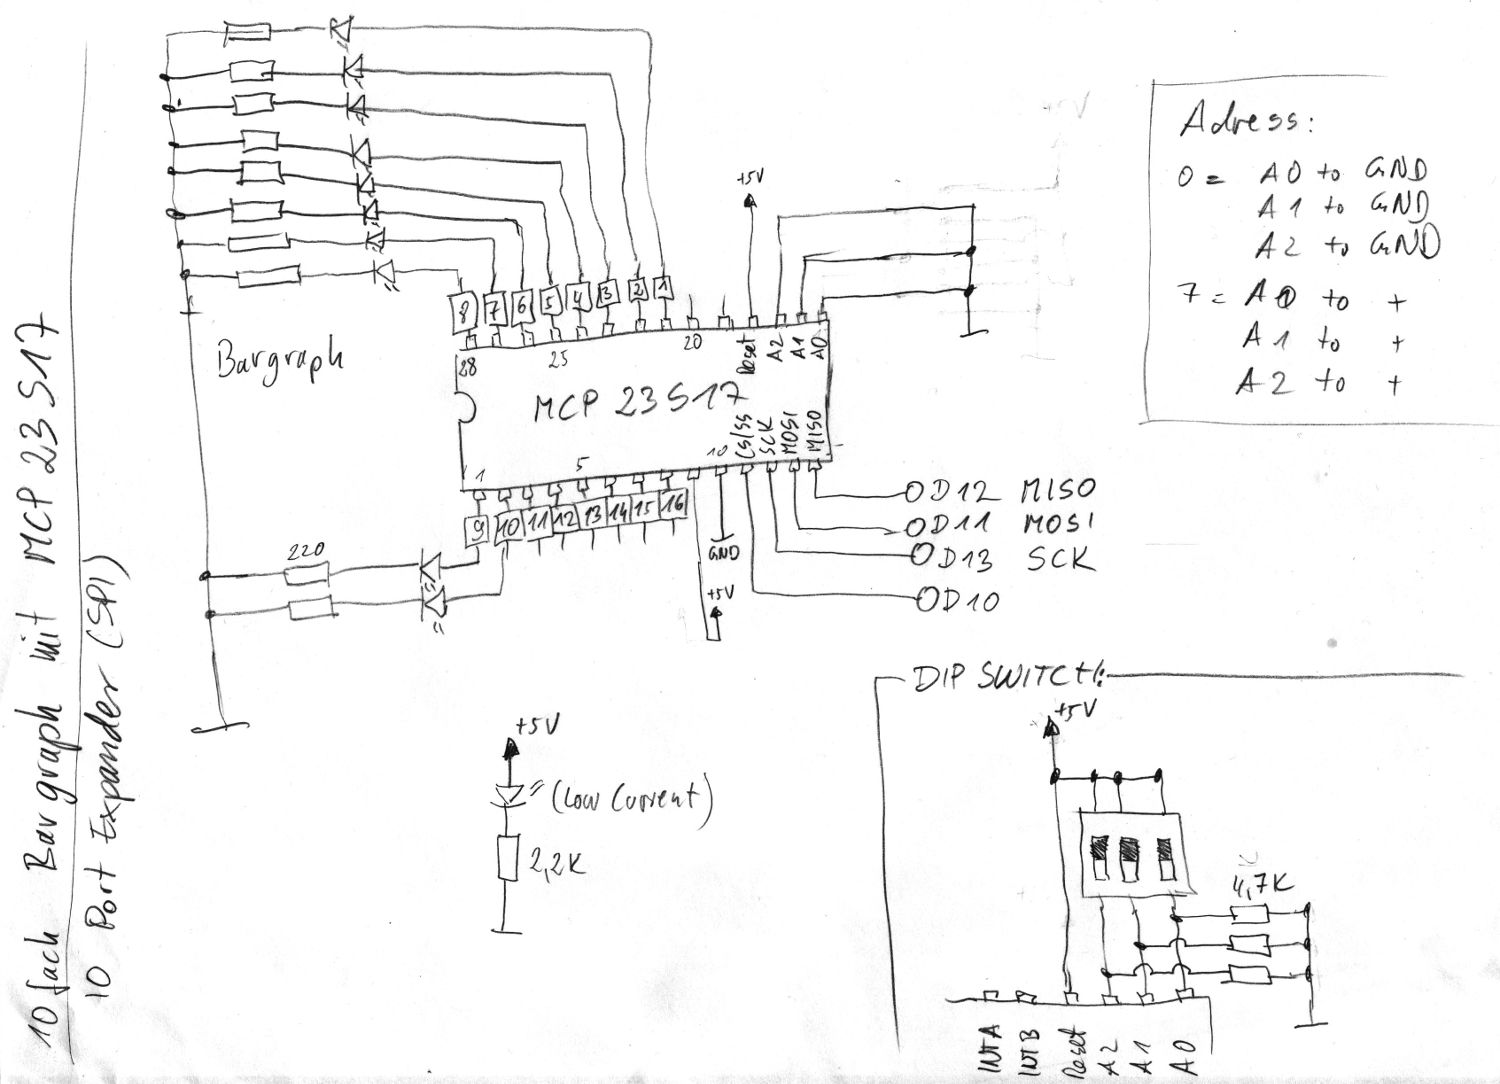 10 fach Bargraph mit MCP 23S17
10 Port Expander (SPI)
Bargraph
+5V
8 7 6 5 4 3 2 1
28 25 20 Reset A2 A1 A0
MCP 23S17
1 5 10 CS/SS SCK MOSI MISO
9 10 11 12 13 14 15 16
220
GND
+5V
D12 MISO
D11 MOSI
D13 SCK
D10
Adress:
0 = A0 to GND
A1 to GND
A2 to GND
7 = A0 to +
A1 to +
A2 to +
+5V
(Low Current)
2,2K
DIP SWITCH:
+5V
4,7K
INTA INTB Reset A2 A1 A0